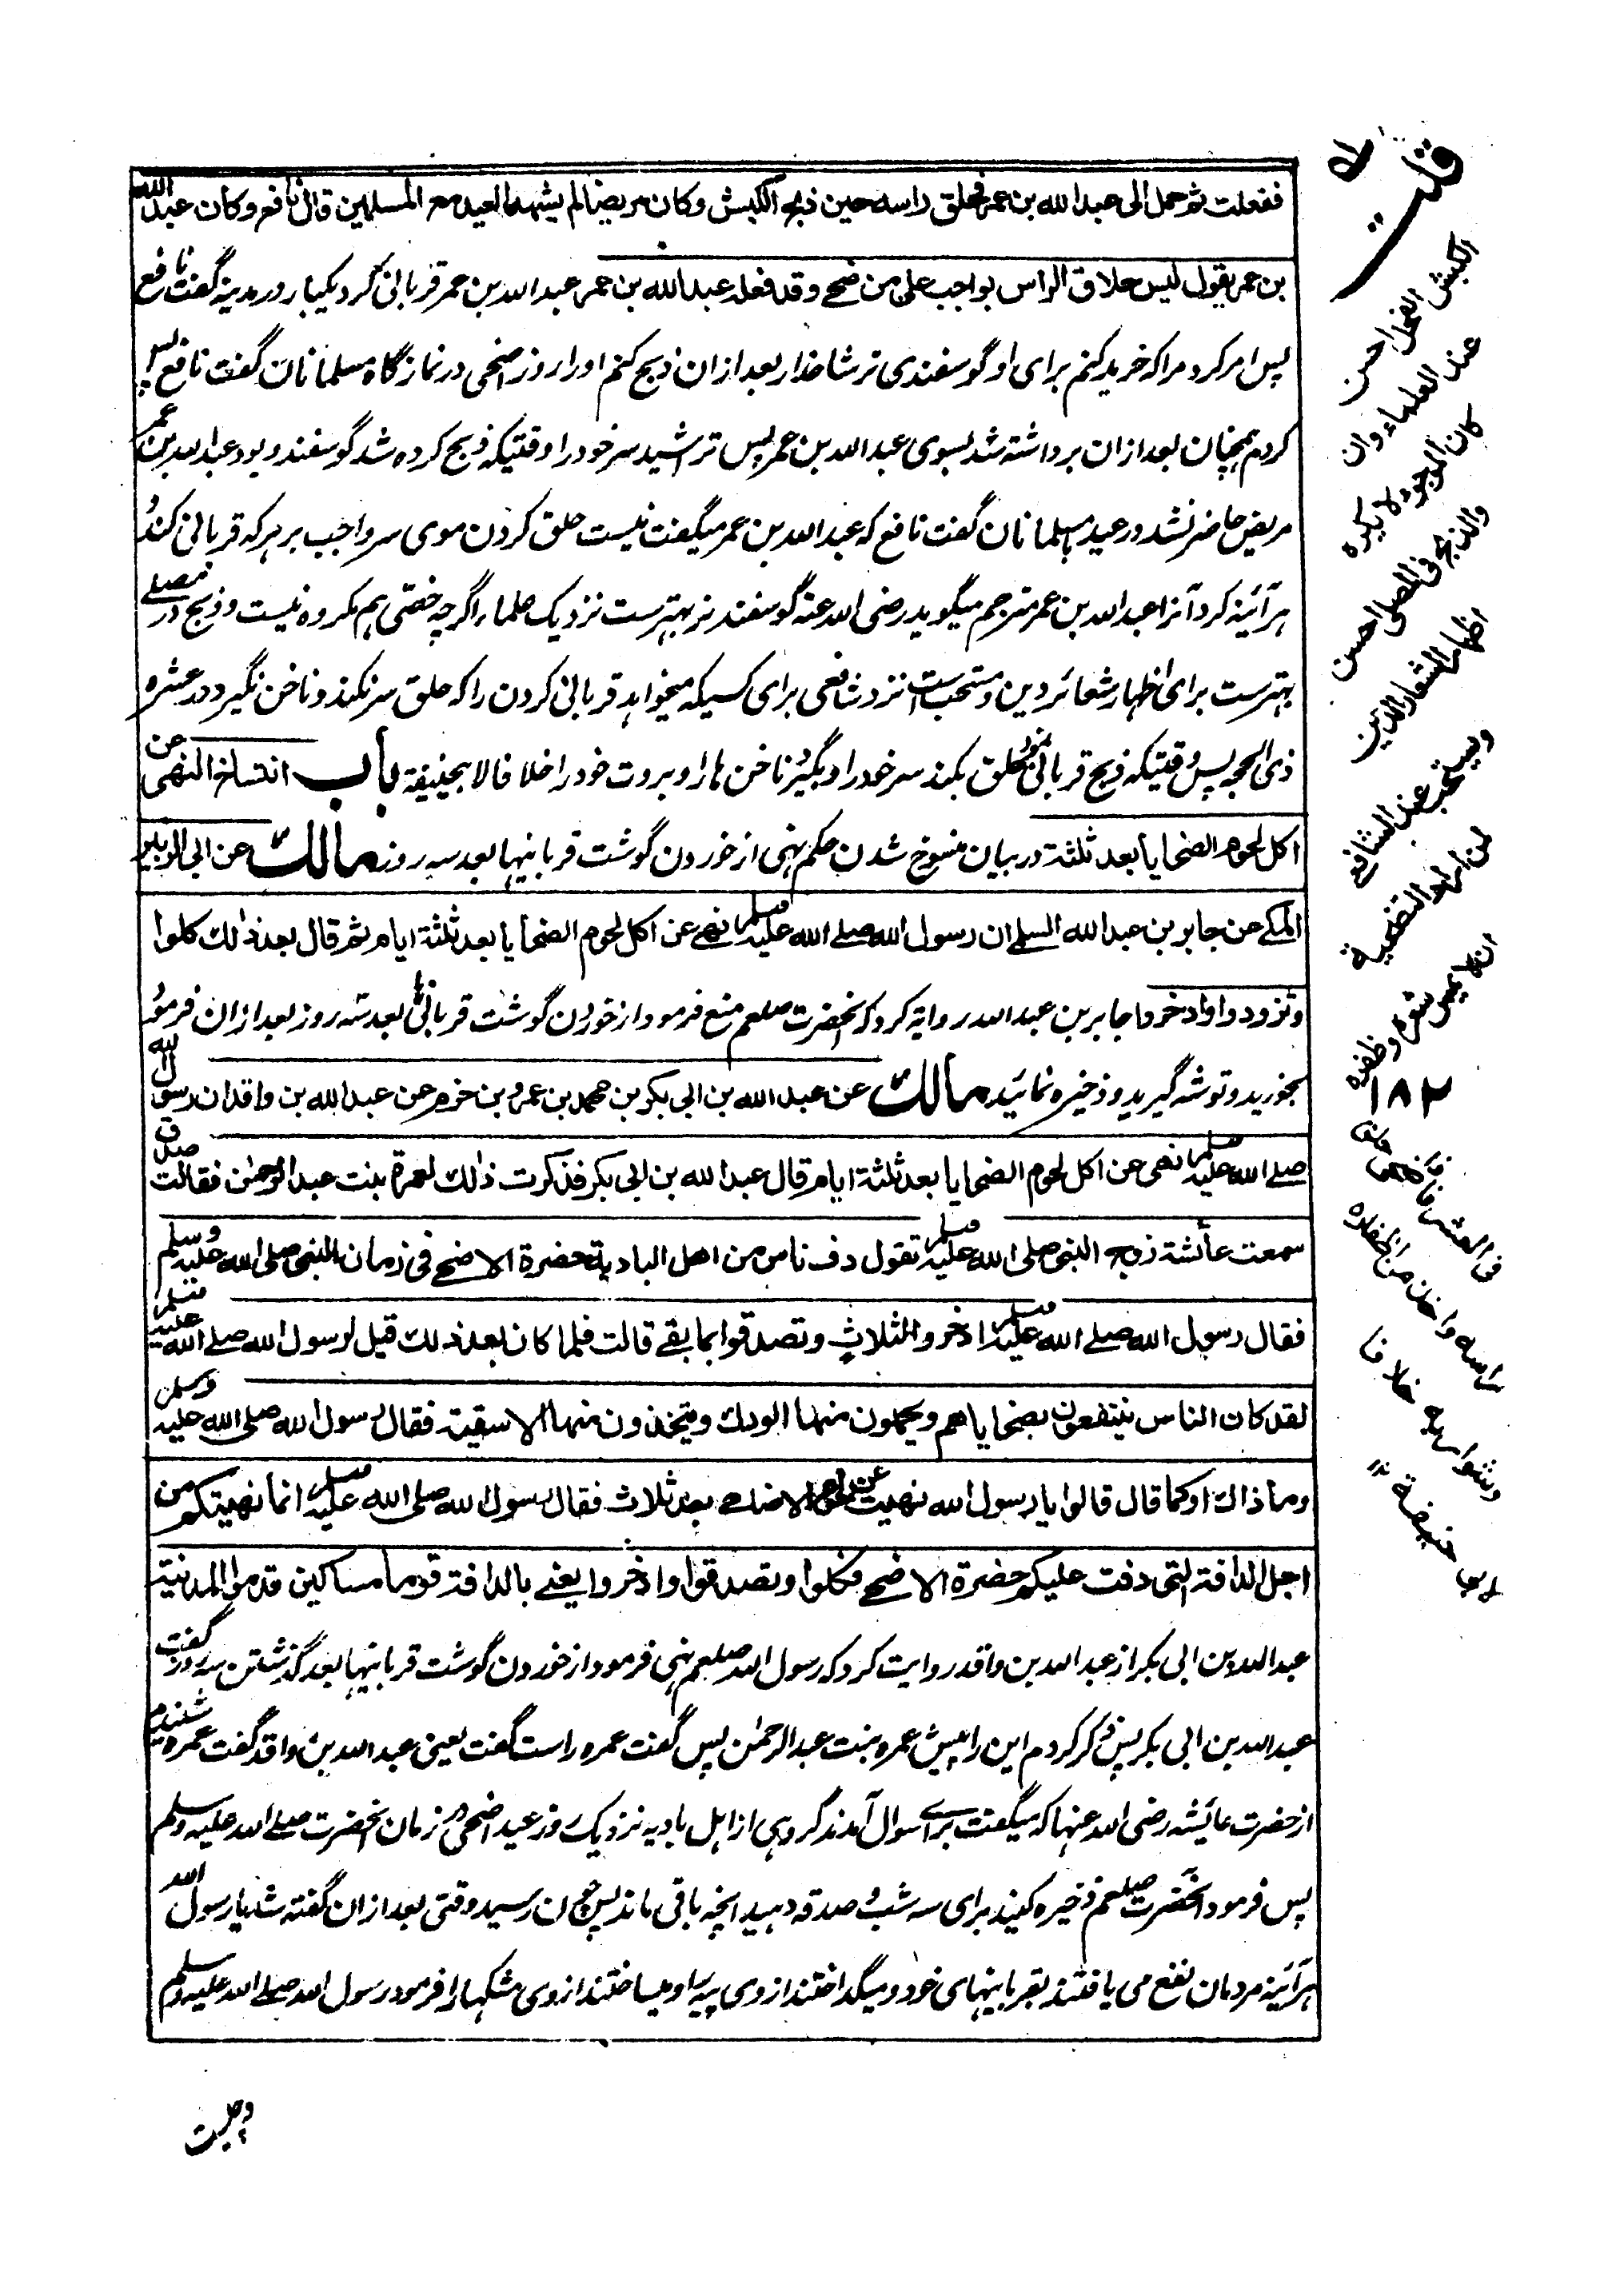 ففعلت ثم حمل الى عبد الله بن عمر فحلق راسه حين ذبح الكبش وكان مريضا لم يشهد العيد مع المسلمين قال نافع وكان عبد الله
بن عمر يقول ليس حلاق الراس بواجب على من ضحے وقد فعله عبد الله بن عمر عبد الله بن عمر قربانی کرد یکبار در مدینه گفت نافع
پس امر کرد مرا که خرید کنم برای او گوسفندی نر شاخدار بعد ازان ذبح کنم اورا روز اضحی در نمازگاه مسلمانان گفت نافع پس
کردم همچنان بعد ازان برداشته شد بسوی عبد الله بن عمر پس تراشید سر خود را وقتیکه ذبح کرده شد گوسفند و بود عبد الله بن عمر
مریض حاضر نشد در عید مسلمانان گفت نافع که عبد الله بن عمر میگفت نیست حلق کردن موی سر واجب بر هر که قربانی کند و
هر آئینه کرد آنرا عبد الله بن عمر مترجم میگوید رضی الله عنه گوسفند نر بهترست نزدیک علماء اگرچه خصی هم مکروه نیست و ذبح در مصلے
بهترست برای اظهار شعائر دین و مستحب ست نزد شافعی برای کسیکه میخواهد قربانی کردن را که حلق سر نکند و ناخن نگیرد در عشره
ذی الحجه پس وقتیکه ذبح قربانی نمود حلق بکند سر خود را و بگیرد ناخن ها را و بروت خود را خلافا لابی حنیفة باب انتساخ النهی عن
اكل لحوم الضحايا بعد ثلثة در بیان منسوخ شدن حکم نهی از خوردن گوشت قربانیها بعد سه روز مالك عن ابى الزبير
المكے عن جابر بن عبد الله السلمے ان رسول الله صلے الله عليه وسلم نهے عن اكل لحوم الضحايا بعد ثلثة ايام ثم قال بعد ذلك كلوا
وتزودوا وادخروا جابر بن عبد الله روایة کرد که آنحضرت صلعم منع فرمود از خوردن گوشت قربانی بعد سه روز بعد ازان فرمود
بخورید و توشه گیرید و ذخیره نمائید مالك عن عبد الله بن ابى بكر بن محمد بن عمرو بن حزم عن عبد الله بن واقد ان رسول الله
صلے الله عليه وسلم نهى عن اكل لحوم الضحايا بعد ثلثة ايام قال عبد الله بن ابى بكر فذكرت ذلك لعمرة بنت عبد الرحمن فقالت صدق
سمعت عائشة زوج النبى صلى الله عليه وسلم تقول دف ناس من اهل البادية حضرة الاضحے فى زمان النبى صلى الله عليه وسلم
فقال رسول الله صلے الله عليه وسلم ادخروا لثلاث وتصدقوا بما بقے قالت فلما كان بعد ذلك قيل لرسول الله صلے الله عليه وسلم
لقد كان الناس ينتفعون بضحاياهم ويجملون منها الودك ويتخذون منها الاسقية فقال رسول الله صلى الله عليه وسلم
وما ذاك او كما قال قالوا يا رسول الله نهيت عن لحوم الاضاحے بعد ثلاث فقال رسول الله صلى الله عليه وسلم انما نهيتكم من
اجل الدافة التى دفت عليكم حضرة الاضحے فكلوا وتصدقوا وادخروا يعنے بالدافة قوما مساكين قدموا المدينة
عبد الله بن ابی بکر از عبد الله بن واقد روایت کرد که رسول الله صلعم نهی فرمود از خوردن گوشت قربانیها بعد گذشتن سه روز گفت
عبد الله بن ابی بکر پس ذکر کردم این را پیش عمره بنت عبد الرحمن پس گفت عمره راست گفت یعنی عبد الله بن واقد گفت عمره شنیدم
از حضرت عائشه رضی الله عنها که میگفت برای سوال آمدند گروهی از اهل بادیه نزدیک روز عید اضحی در زمان آنحضرت صلے الله علیه وسلم
پس فرمود آنحضرت صلعم ذخیره کنید برای سه شب و صدقه دهید انچه باقی ماند پس چون رسید وقتی بعد ازان گفته شد یا رسول الله
هر آئینه مردمان نفع می یافتند بقربانیهای خود و میگداختند از وی پیه را و میساختند از وی مشکها را فرمود رسول الله صلے الله علیه وسلم
قلت
الكبش الفحل احسن
عند العلماء وان
كان الموجوء لا يكره
والذبح فى المصلى احسن
اظهارا لشعائر الدين
ويستحب عند الشافعے
لمن اراد التضحية
ان لا يمس شعره وظفره
١٨٢
فى العشر فاذا ضحى حلق
راسه واخذ من اظفاره
وشواربه خلافا
لابى حنيفة